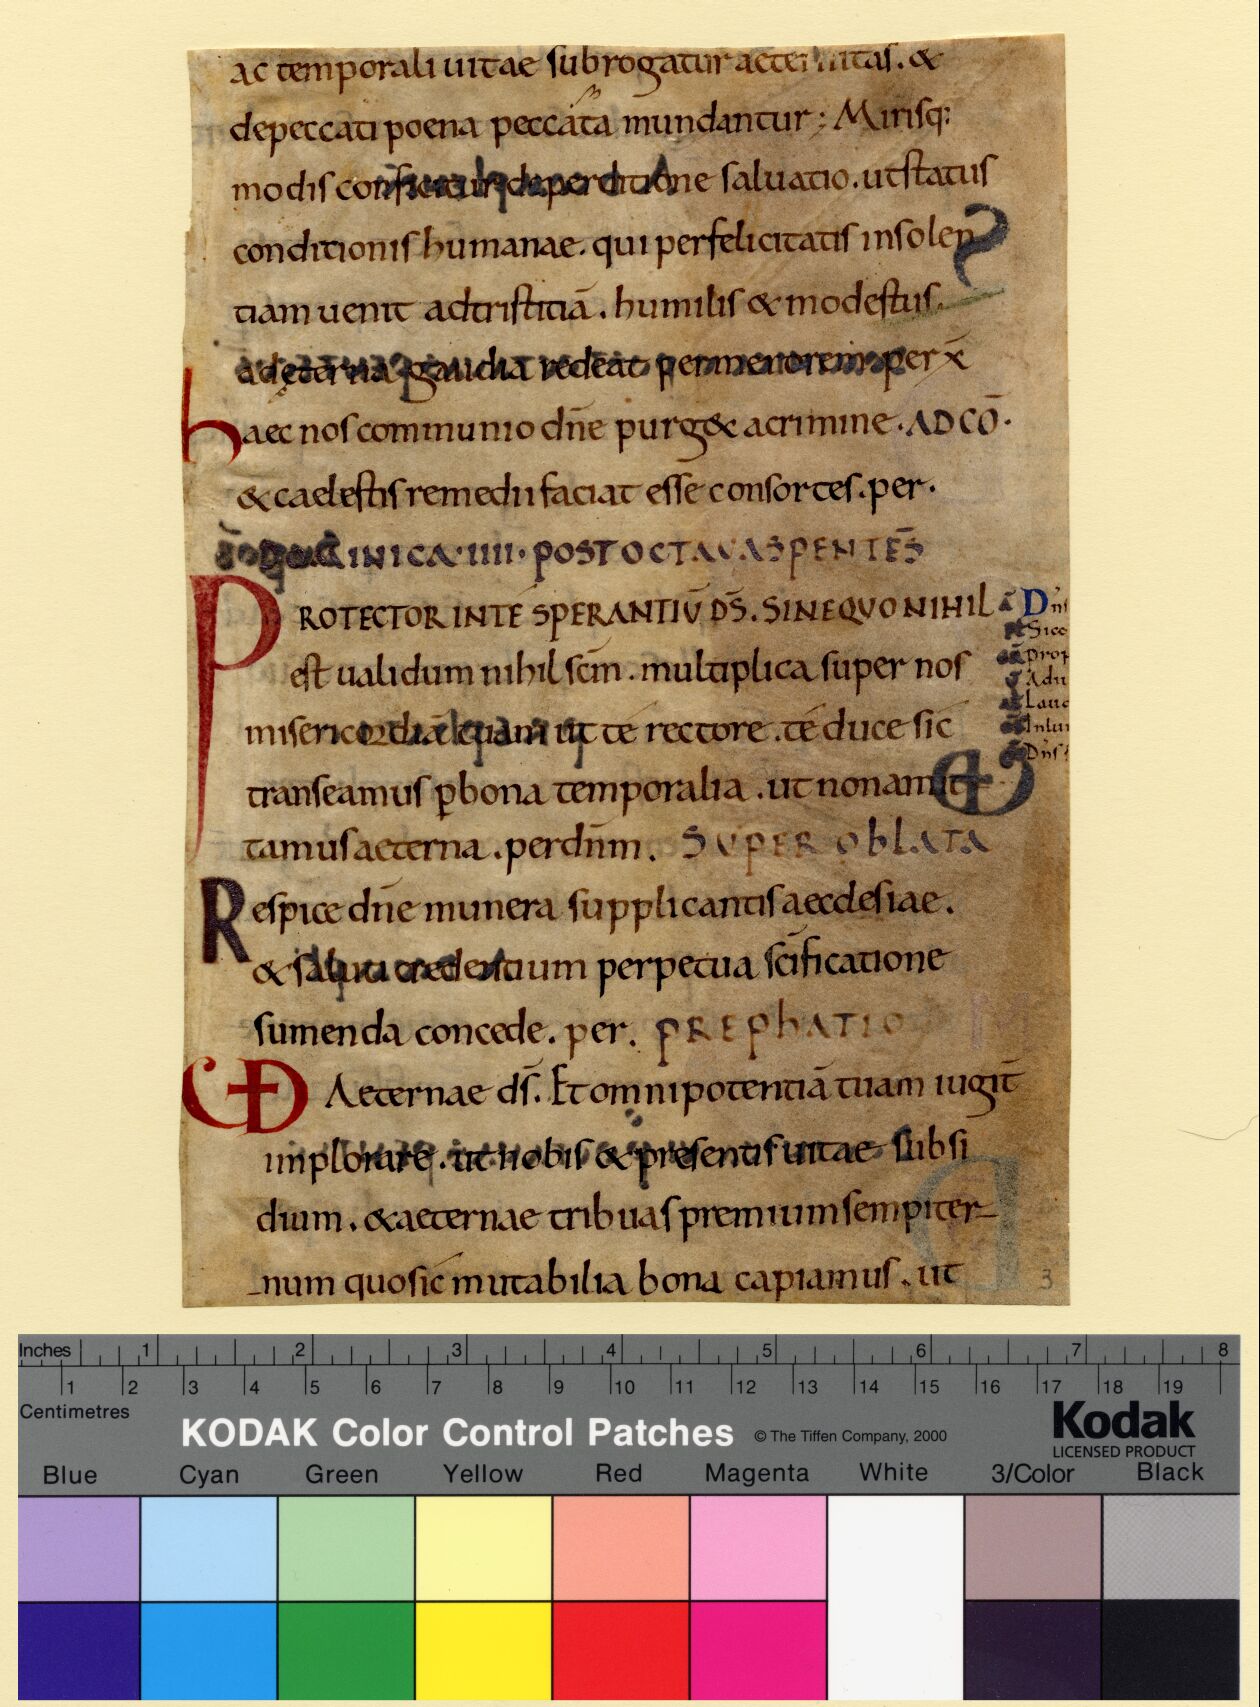 ac temporali uitae subrogatur aeternitas. &
depeccati poena peccata mundantur; Mirisq;
modis conficitur deperditione saluatio. utstatus
conditionis humanae. qui perfelicitatis insolen
tiam uenit adtristitiā. humilis & modestus.
adęterna gaudia redeat permerorem. per x̄
haec nos communio dn̄e purg& acrimine. AD CŌ.
& caelestis remedii faciat esse consortes. per.
DOMINICA IIII. POST OCTAVAS PENTEŜ
PROTECTOR INTE SPERANTIŪ DS̄. SINE QVO NIHIL
est ualidum nihil scm̄. multiplica super nos
misericordiā tuam ut te rectore. te duce sic
transeamus p̱bona temporalia. ut nonamit
tamus aeterna. perdn̄m. SUPER OBLATA
Respice dn̄e munera supplicantis aecclesiae.
& saluti credentium perpetua sc̄ificatione
sumenda concede. per. PREPHATIO
Aeternae ds̄. Et omnipotentiā tuam iugit̄
implorare. ut nobis & presentis uitae subsi
dium. & aeternae tribuas premium sempiter
num quo sic mutabilia bona capiamus. ut
Dn̄s
Sico
prop
Adn
Lauo
Inlui
Dn̄s
3
Inches 1 2 3 4 5 6 7 8
1 2 3 4 5 6 7 8 9 10 11 12 13 14 15 16 17 18 19
Centimetres
KODAK Color Control Patches © The Tiffen Company, 2000
Kodak
LICENSED PRODUCT
Blue Cyan Green Yellow Red Magenta White 3/Color Black